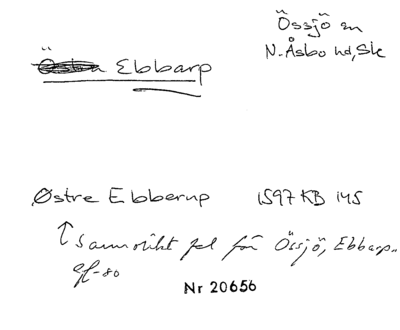 Össjö sn
N. Åsbo hd, Sk
Ö Ebbarp
Østre Ebberup 1597 KB 145
↑ Sannolikt fel för Össjö, Ebbarp.
Nr 20656